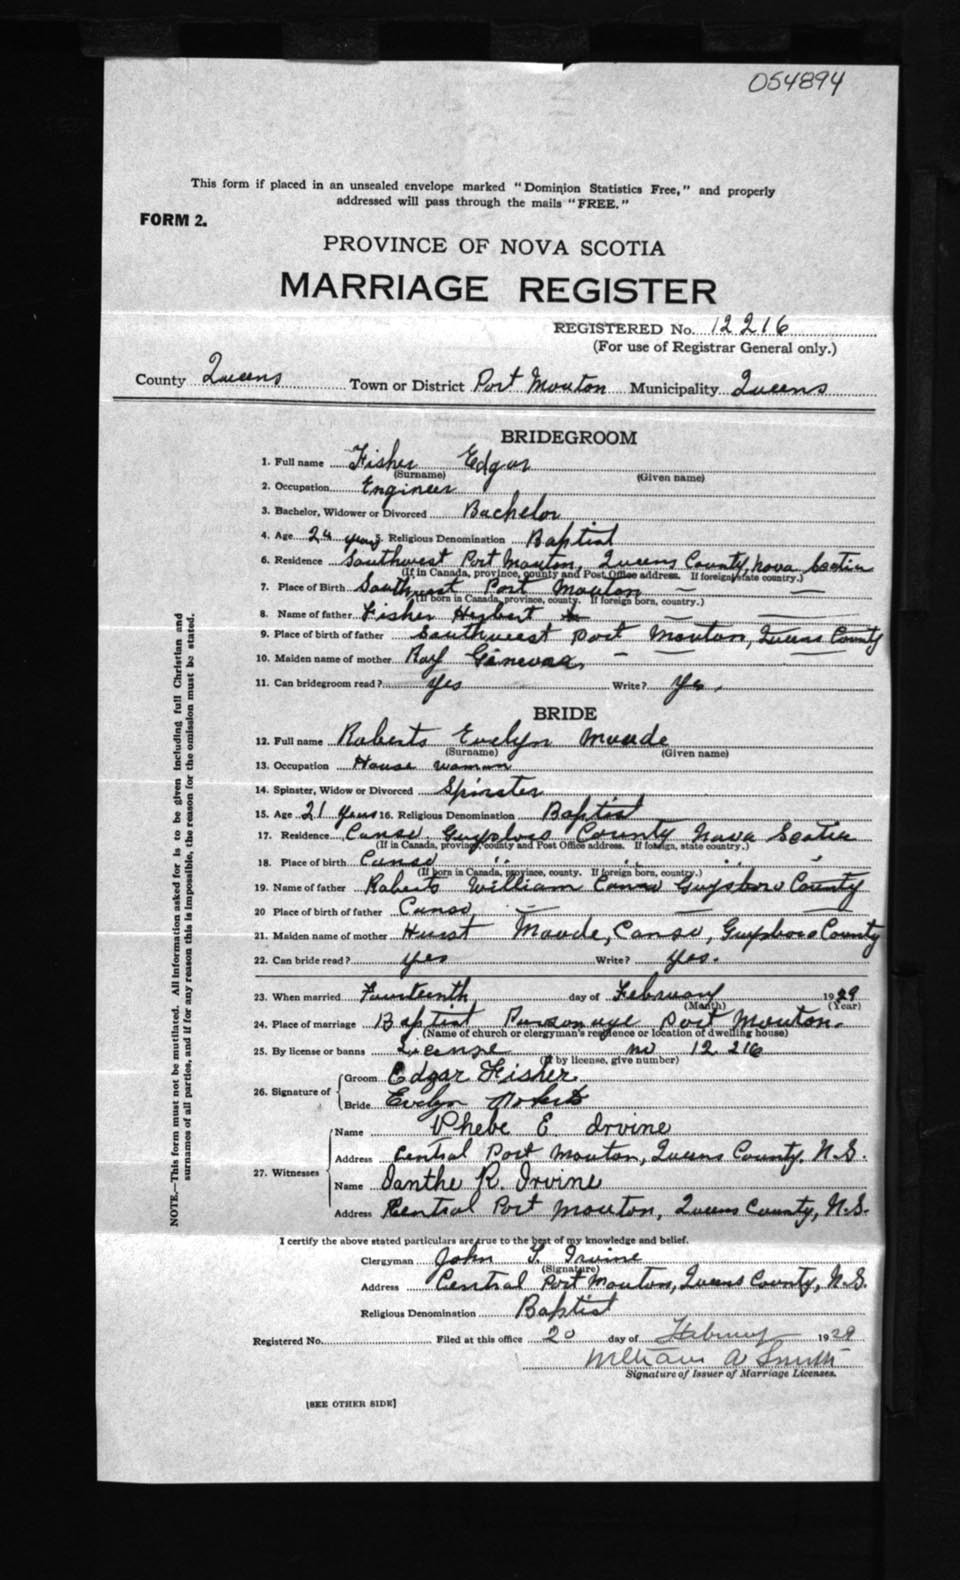 054894
This form if placed in an unsealed envelope marked "Dominion Statistics Free," and properly
addressed will pass through the mails "FREE."
FORM 2.
PROVINCE OF NOVA SCOTIA
MARRIAGE REGISTER
REGISTERED No. 12216
(For use of Registrar General only.)
County Queens Town or District Port Mouton Municipality Queens
BRIDEGROOM
1. Full name Fisher Edgar
(Surname) (Given name)
2. Occupation Engineer
3. Bachelor, Widower or Divorced Bachelor
4. Age 24 years Religious Denomination Baptist
6. Residence Southwest Port Mouton, Queens County, Nova Scotia
(If in Canada, province, county and Post Office address. If foreign, state country.)
7. Place of Birth Southwest Port Mouton
(If born in Canada, province, county. If foreign born, country.)
8. Name of father Fisher Herbert
9. Place of birth of father Southwest Port Mouton, Queens County
10. Maiden name of mother Roy
11. Can bridegroom read? yes Write? yes.
BRIDE
12. Full name Roberts Evelyn Maude
(Surname) (Given name)
13. Occupation House woman
14. Spinster, Widow or Divorced Spinster
15. Age 21 years 16. Religious Denomination Baptist
17. Residence Canso Guysboro County Nova Scotia
(If in Canada, province, county and Post Office address. If foreign, state country.)
18. Place of birth Canso " " " "
(If born in Canada, province, county. If foreign born, country.)
19. Name of father Roberts William Canso Guysboro County
20 Place of birth of father Canso
21. Maiden name of mother Hurst Maude, Canso, Guysboro County
22. Can bride read? yes Write? yes.
23. When married Fourteenth day of February 1929
(Month) (Year)
24. Place of marriage Baptist Parsonage Port Mouton.
(Name of church or clergyman's residence or location of dwelling house)
25. By license or banns License no 12216
(If by license, give number)
26. Signature of
Groom Edgar Fisher
Bride Evelyn Roberts
27. Witnesses
Name Phebe E. Irvine
Address Central Port Mouton, Queens County, N.S.
Name Ianthe R. Irvine
Address Central Port Mouton, Queens County, N.S.
I certify the above stated particulars are true to the best of my knowledge and belief.
Clergyman John Irvine
(Signature)
Address Central Port Mouton, Queens County, N.S.
Religious Denomination Baptist
Registered No. Filed at this office 20 day of February 1929
William A Smith
Signature of Issuer of Marriage Licenses.
[SEE OTHER SIDE]
NOTE.—This form must not be mutilated. All information asked for is to be given including full Christian and
surnames of all parties, and if for any reason this is impossible, the reason for the omission must be stated.